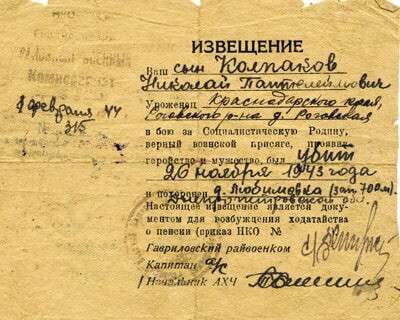 НКО СССР
военный
Комиссариат
9 февраля 44
№ 215
ИЗВЕЩЕНИЕ
Ваш сын Колпаков
Николай Пантелеймович
Уроженец Краснодарского края,
р-на д. Роговская
в бою за Социалистическую Родину,
верный воинской присяге, проявив
геройство и мужество, был убит
26 ноября 1943 года
и похоронен д. Любимовка (зап. 700 м)
Днепропетровской обл.
Настоящее извещение является доку-
ментом для возбуждения ходатайства
о пенсии (приказ НКО №
Гавриловский райвоенком
Капитан а/с
Начальник АХЧ